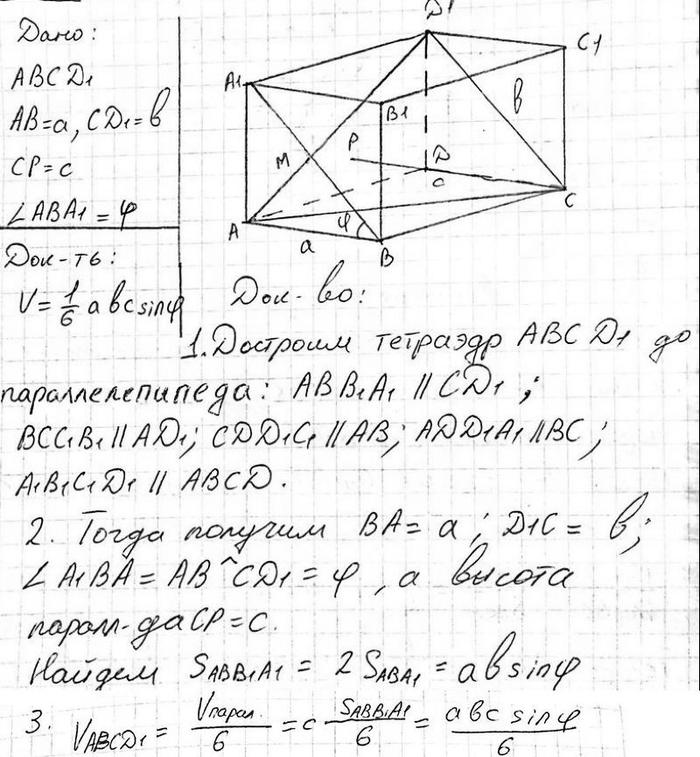 Дано:
ABCD1
AB=a, CD1=b
CP=c
∠ABA1=φ
Док-ть:
V=1/6 abc sinφ
D1
C1
A1
B1
b
P
M
D
c
C
A
φ
a
B
Док-во:
1. Достроим тетраэдр ABCD1 до
параллелепипеда: ABB1A1 || CD1;
BCC1B1 || AD1; CDD1C1 || AB; ADD1A1 || BC;
A1B1C1D1 || ABCD.
2. Тогда получим BA=a; D1C=b;
∠A1BA=AB^CD1=φ, а высота
паралл-да CP=c.
Найдем SABB1A1=2SABA1=absinφ
3. VABCD1=Vпарал./6=c SABB1A1/6=abc sinφ/6